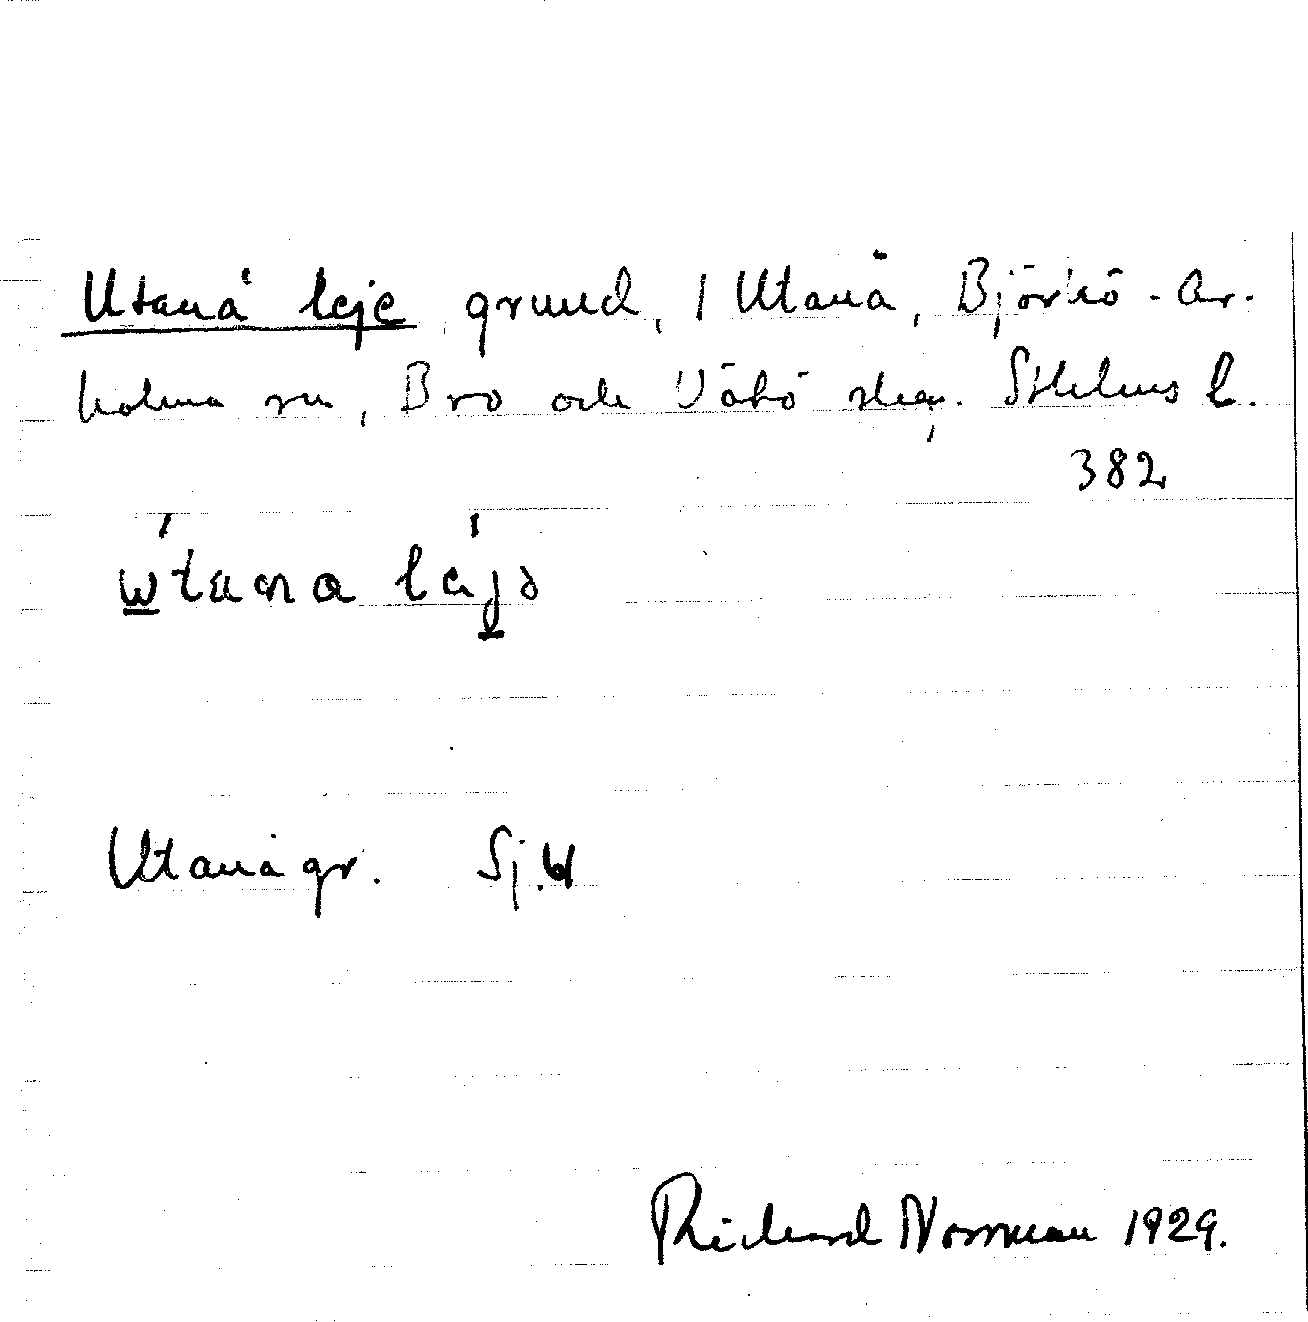 Utanå leje grund, 1 Utanå, Björkö-Ar-
holma sn, Bro och Vätö skg. Sthlms l.
382
Utanågr. Sj.61
Richard Norrman 1929.